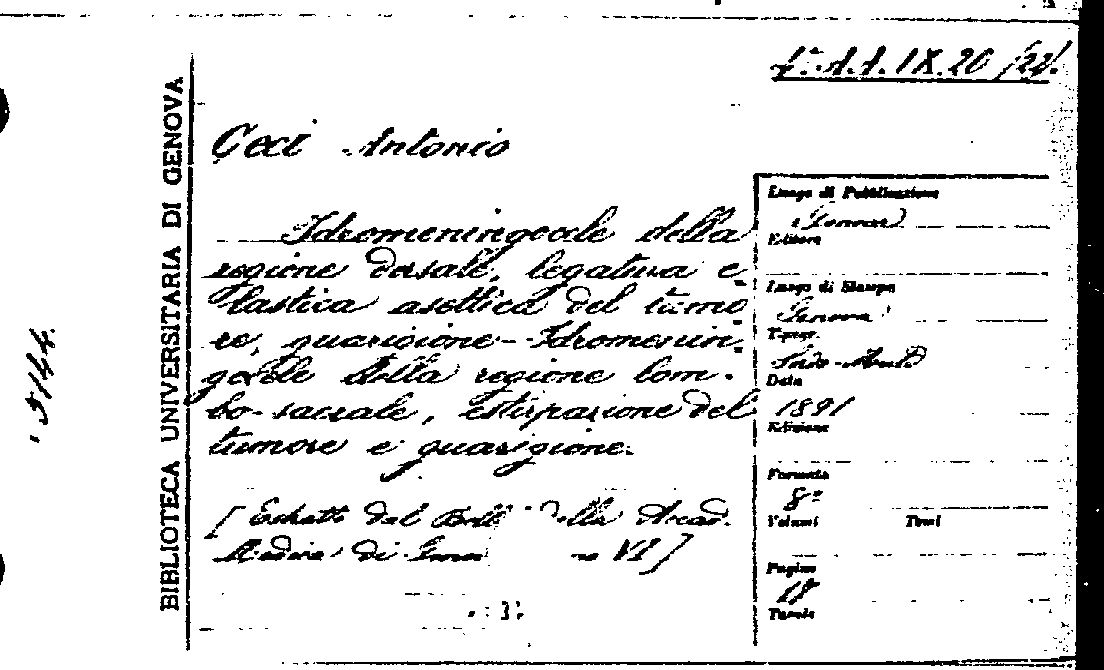 4° A.A. IX. 20 /22.
BIBLIOTECA UNIVERSITARIA DI GENOVA
Ceci Antonio
Idromeningocele della
regione dorsale, legatura e-
lastica asettica del tumo
re, guarigione - Idromenin-
gocele della regione lom-
bo-sacrale, estirpazione del
tumore e guarigione.
[Estratto dal Boll della Accad.
Medica di VI]
Luogo di Pubblicazione
Genova
Editore
Luogo di Stampa
Genova
Tipogr.
Sordo-Muti
Data
1891
Edizione
Formato
8°
Volumi Tomi
Pagine
18
Tavole
5144.